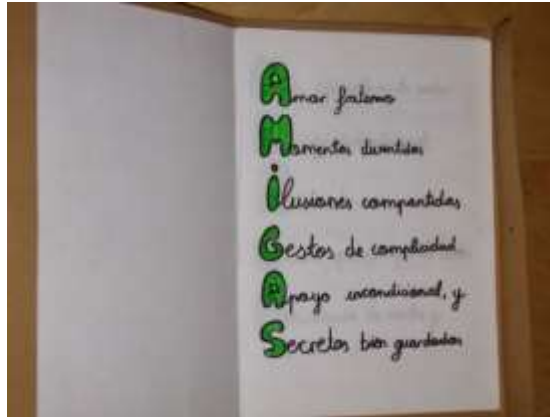 Amor fraterno
Momentos divertidos
Ilusiones compartidas,
Gestos de complicidad
Apoyo incondicional, y
Secretos bien guardados